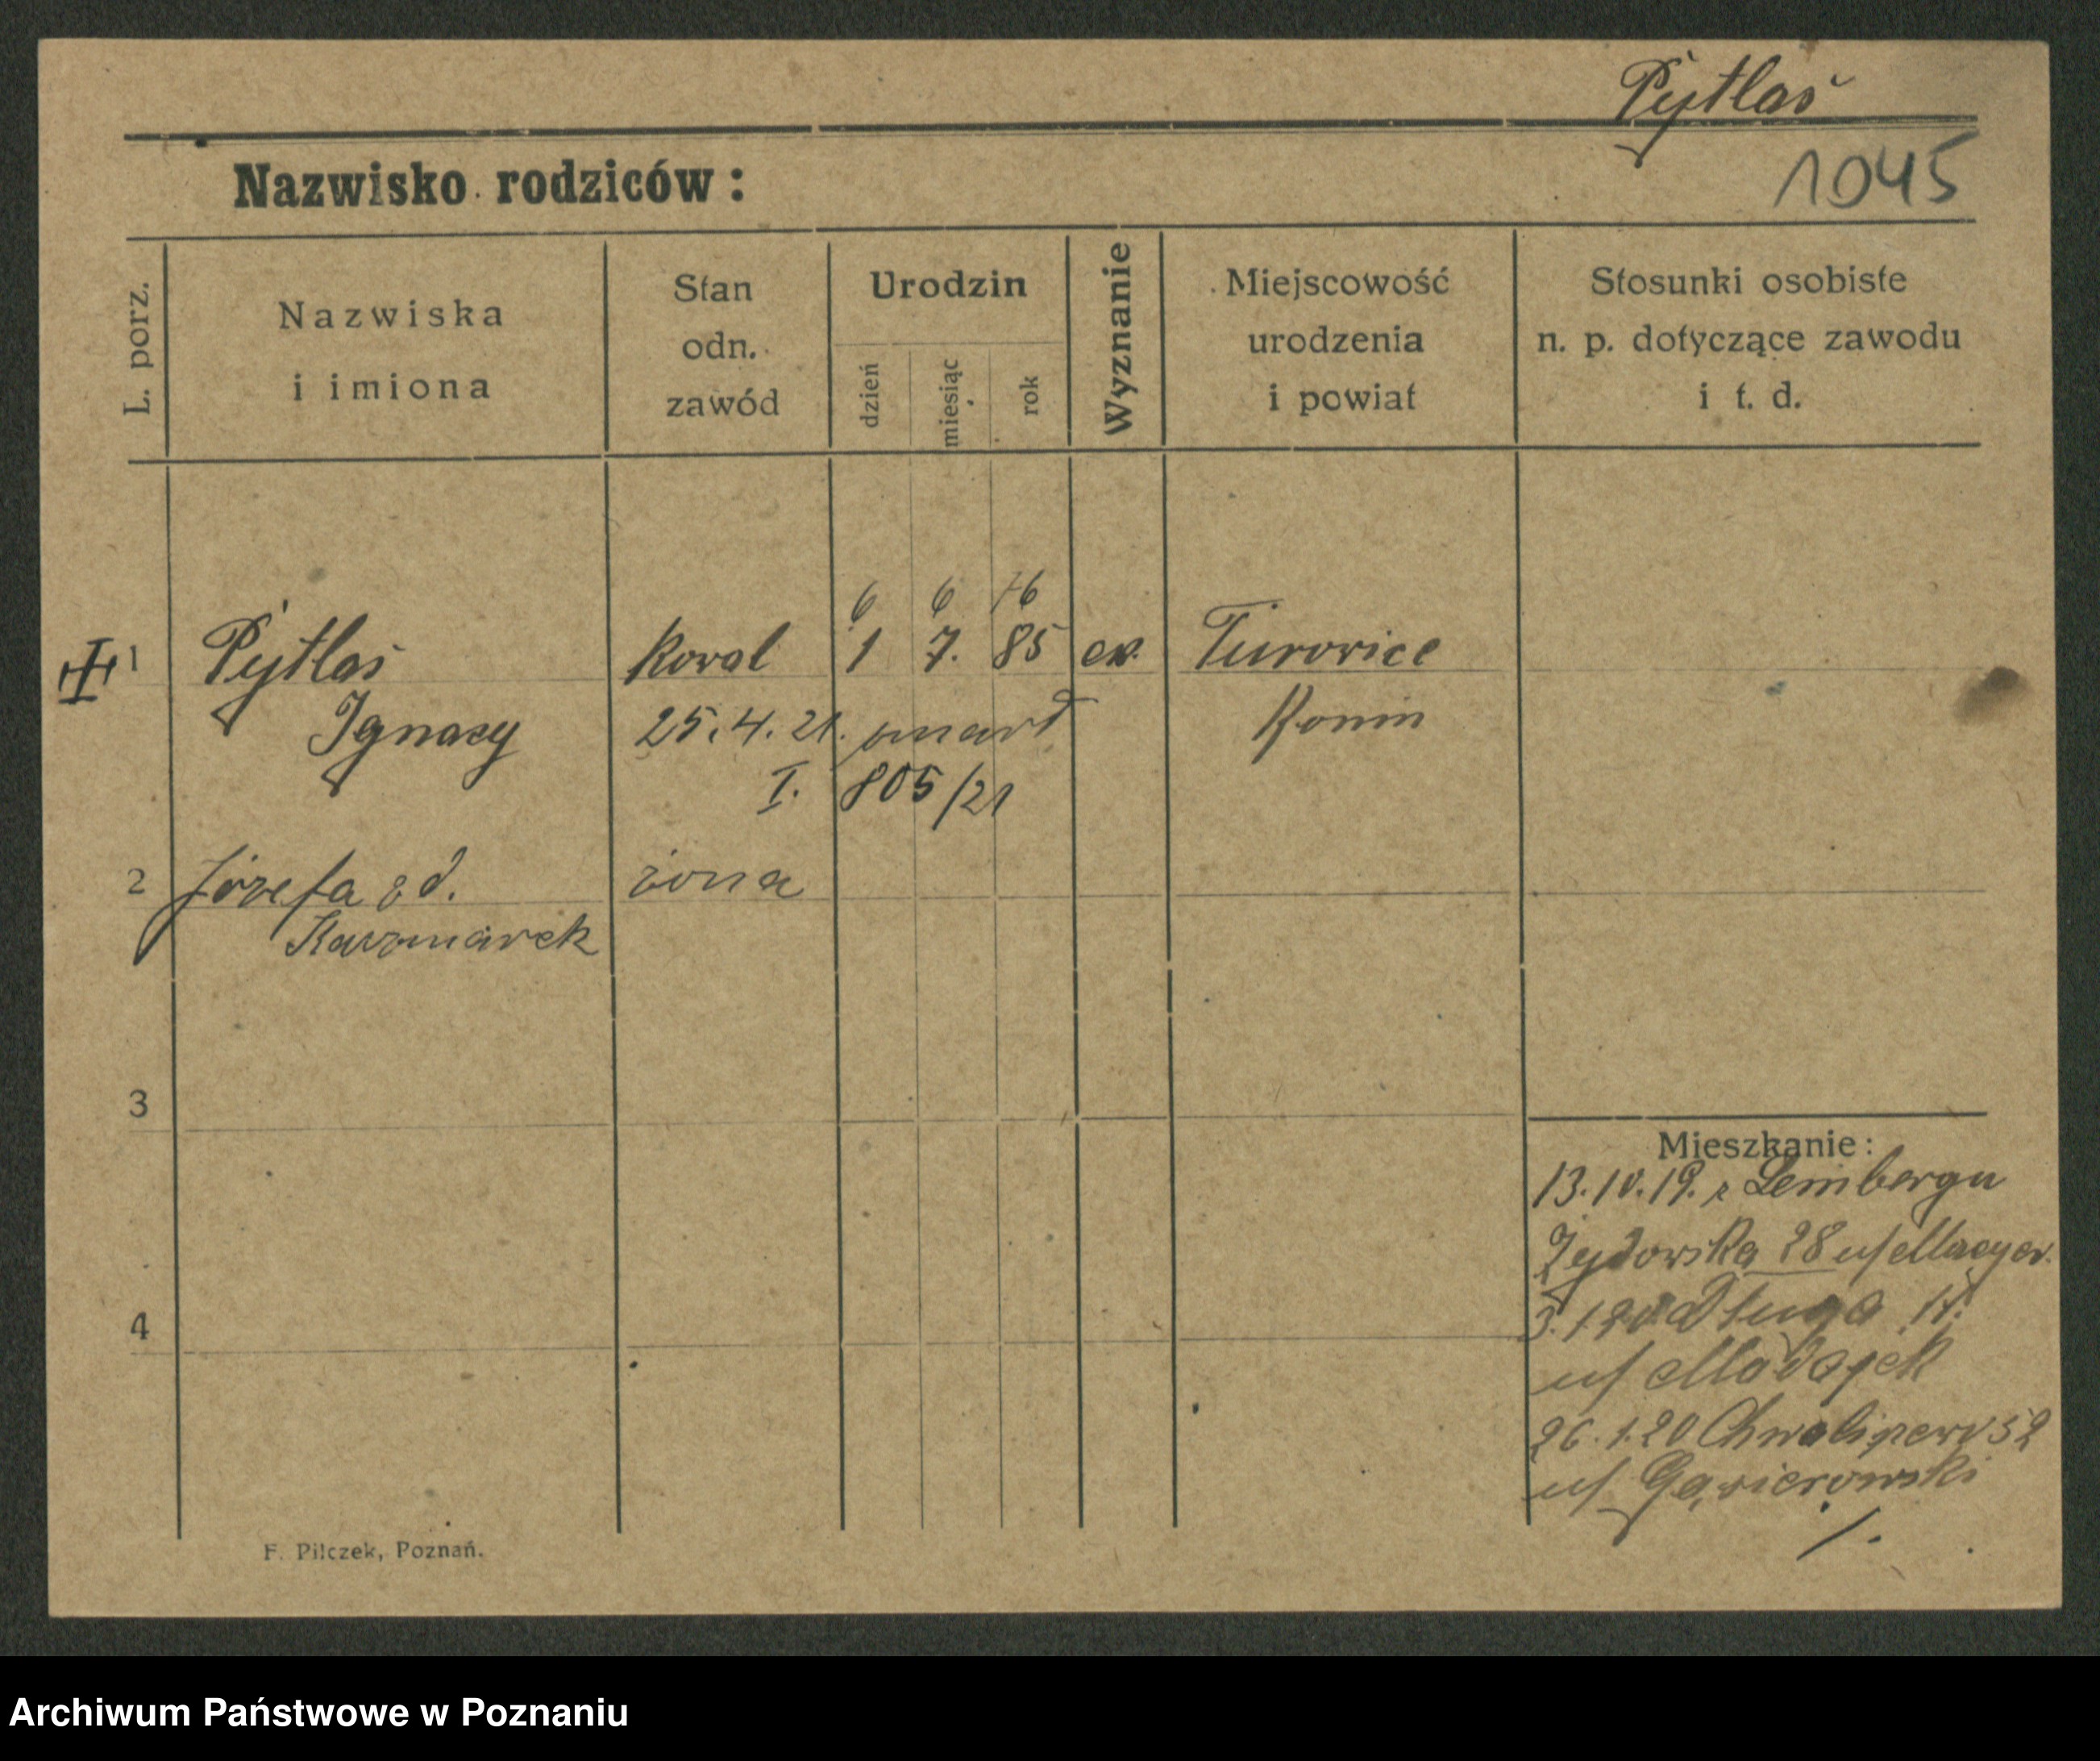 Pytlaś
Nazwisko rodziców:
1045
L. porz.
Nazwiska
i imiona
Stan
odn.
zawód
Urodzin
dzień
miesiąc
rok
Wyznanie
Miejscowość
urodzenia
i powiat
Stosunki osobiste
n. p. dotyczące zawodu
i t. d.
6 6 76
1 Pytlaś Koval 1 7. 85 ew. Turovice
Ignacy 25.4.21. umarł Konin
I. 805/21
2 Józefa zd. żona
Kaczmarek
3
Mieszkanie:
13.10.19. z Lembergu
Żydowska 28 u/
4
Długa
u/ Madajek
26.1.20 52
u/ Gąsierowski
F. Pilczek, Poznań.
Archiwum Państwowe w Poznaniu